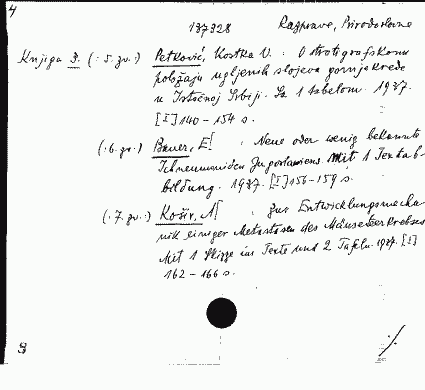 4
137328 Razprave, Prirodoslovne
Knjiga 3. (: 5. zv.) Petković, Kosta V. : O stratigrafskomu
položaju ugljenih slojeva gornje krede
u Istočnoj Srbiji. Sa 1 tabelom. 1937.
[I] 140 – 154 s.
(: 6. zv.) Bauer, E! : Neue oder wenig bekannte
Ichneumoniden Jugoslawiens. Mit 1 Textab-
bildung. 1937. [I] 156 – 159 s.
(: 7. zv.) Košir, A! : Zur Entwicklungsmecha-
nik einiger Metastasen des Mäusekrebses
Mit 1 Skizze im Texte und 2 Tafeln. 1937. [I]
162 – 166 s.